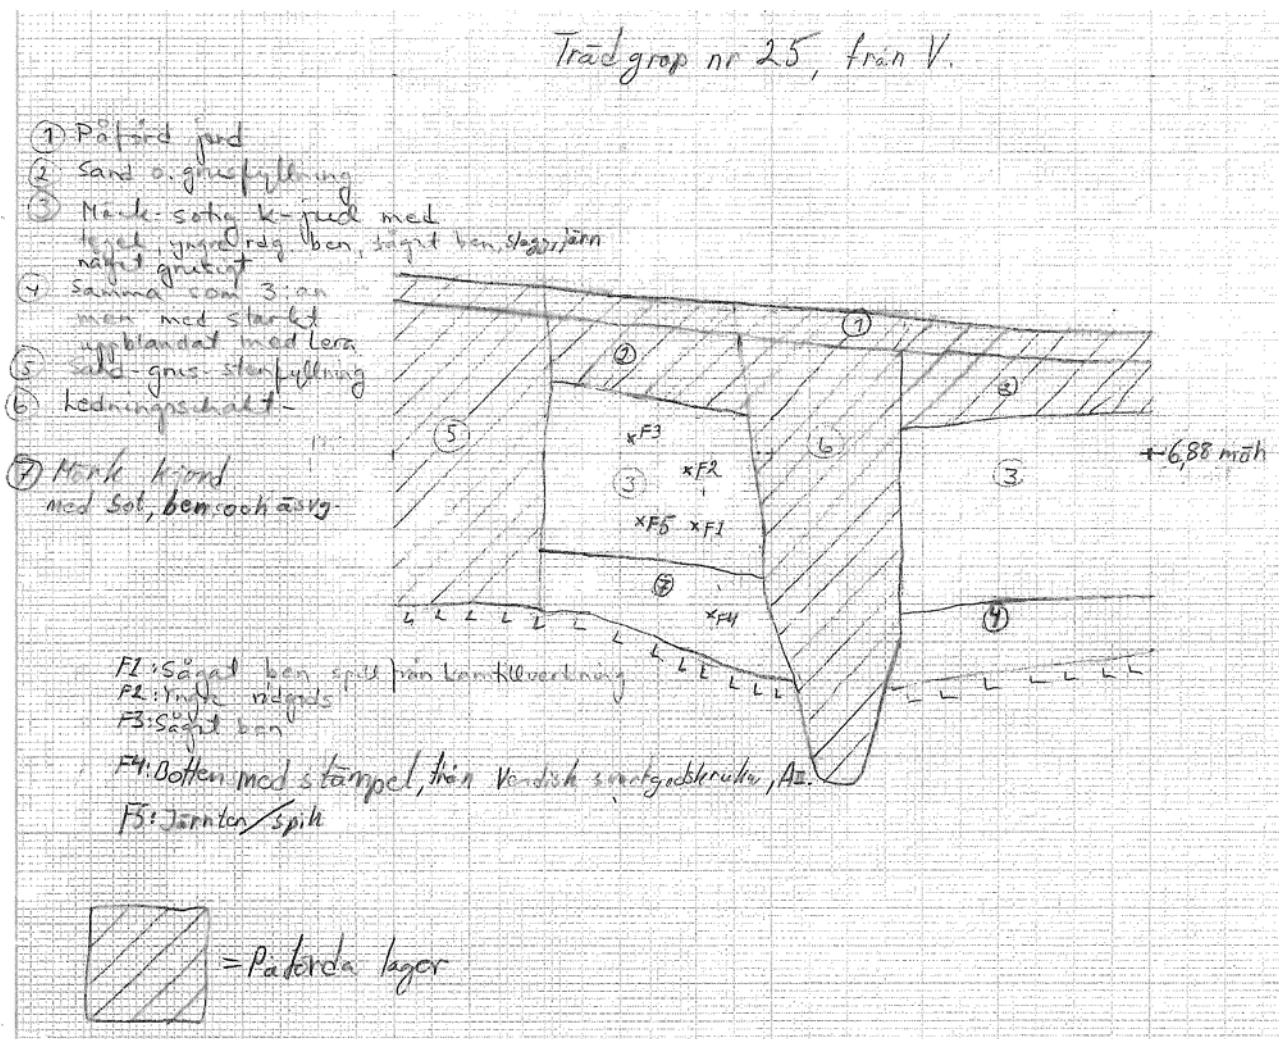 Trädgrop nr 25, från V.
① Påförd jord
② Sand o. grusfyllning
③ Mörk-sotig k-jord med
tegel, yngre rdg. ben, sågat ben, slagg, järn
något grusigt
④ Samma som 3:an
men med starkt
uppblandat med Lera
⑤ Sand-grus-stenfyllning
⑥ Ledningsschakt-
⑦ Mörk kjord
med Sot, ben och
①
②
③
⑤
⑥
③
xF3
xF2
xF5 xF1
+6,88 möh
⑦
xF4
④
F1: Sågat ben spill från kamtillverkning
F2: Yngre rödgods
F3: Sågat ben
F4: Botten med stämpel, från Vendisk svartgodskruka, AII.
F5: Järnten/spik
= Påförda lager